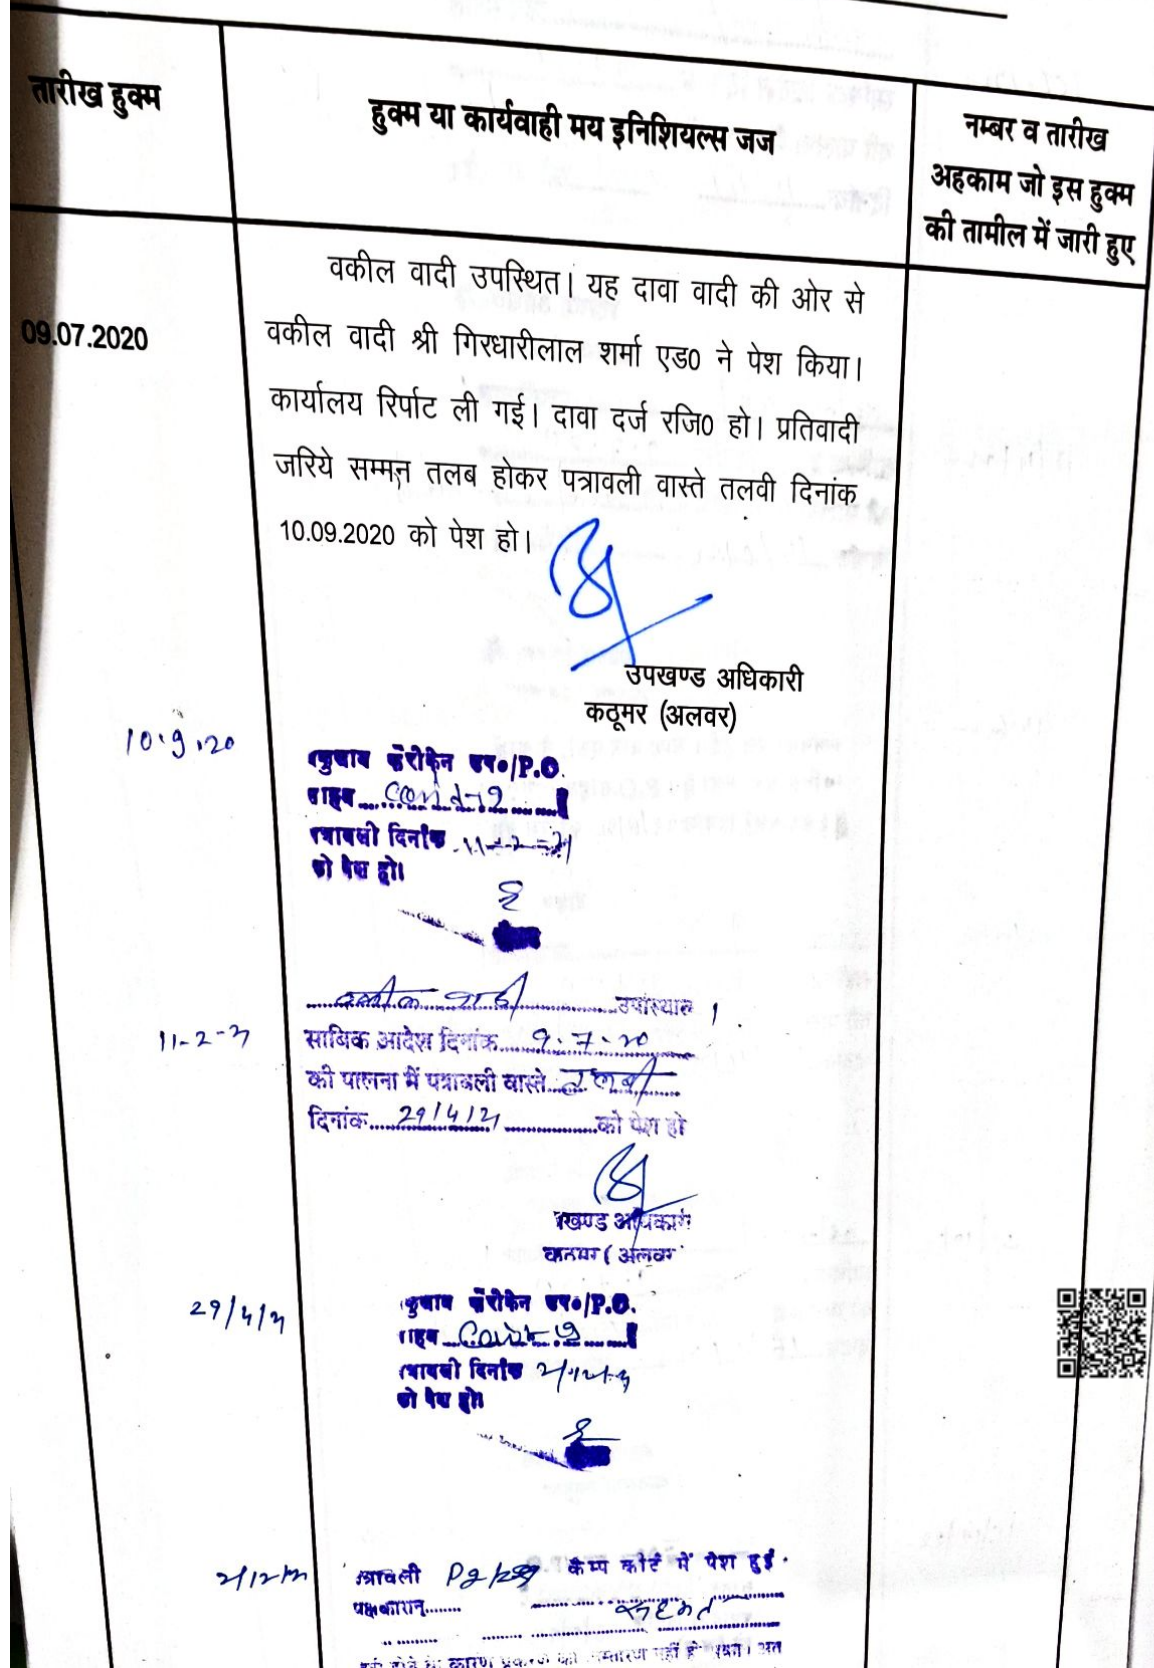 तारीख हुक्म
हुक्म या कार्यवाही मय इनिशियल्स जज
नम्बर व तारीख
अहकाम जो इस हुक्म
की तामील में जारी हुए
09.07.2020
वकील वादी उपस्थित। यह दावा वादी की ओर से
वकील वादी श्री गिरधारीलाल शर्मा एड0 ने पेश किया।
कार्यालय रिर्पाट ली गई। दावा दर्ज रजि0 हो। प्रतिवादी
जरिये सम्मन तलब होकर पत्रावली वास्ते तलवी दिनांक
10.09.2020 को पेश हो।
उपखण्ड अधिकारी
कठूमर (अलवर)
10.9.20
/P.O.
पत्रावली दिनांक 11-2-21
को पेश हो।
11-2-21
वकील वादी उपस्थित ।
साबिक आदेश दिनांक 9.7.20
की पालना में पत्रावली वास्ते तलबी
दिनांक 29/4/21 को पेश हो
29/4/21
/P.O.
पत्रावली दिनांक 2/12/21
को पेश हो।
2/12/21
पत्रावली कैम्प कोर्ट में पेश हुई
पक्षकारान्
सहमत
के कारण